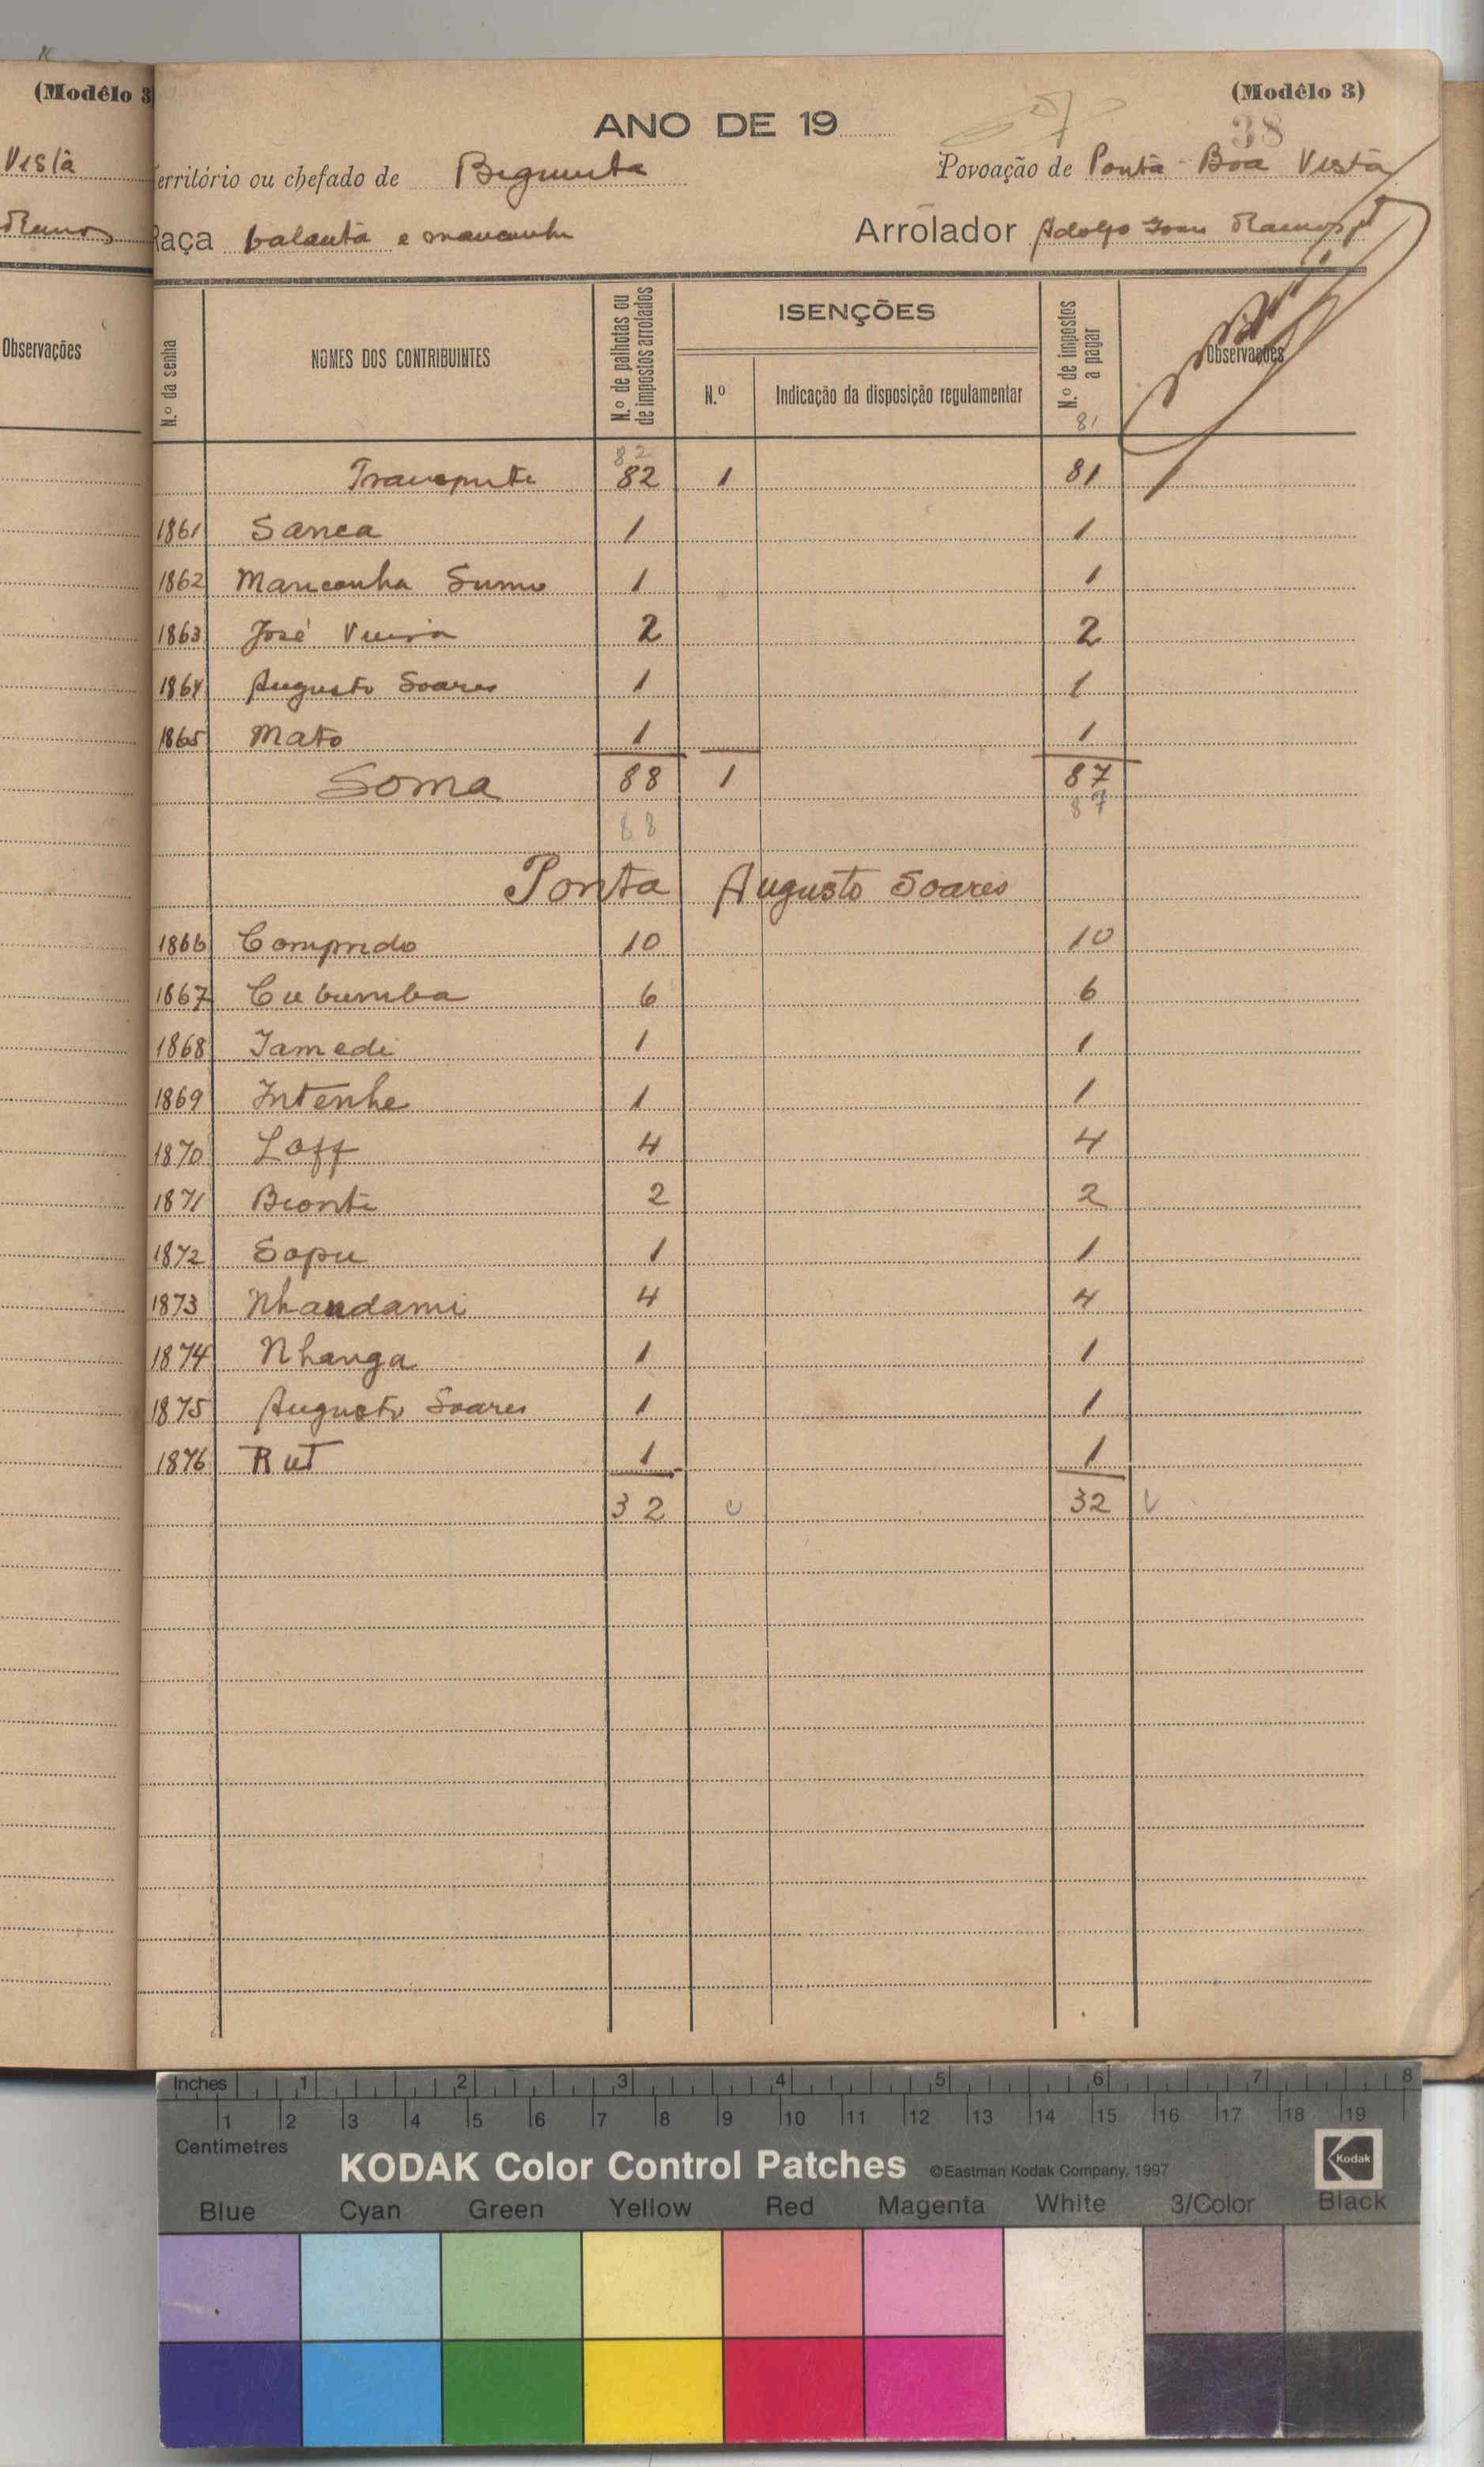 (Modêlo 3
Vista
Ramos
Observações
(Modêlo 3)
38
ANO DE 19
erritório ou chefado de
Povoação de Ponta - Boa Vista
Raça balanta e mancanha
Arrolador Adolfo Ramos
N.º da senha
NOMES DOS CONTRIBUINTES
N.º de palhotas ou de impostos arrolados
ISENÇÕES
N.º
Indicação da disposição regulamentar
N.º de impostos a pagar
Observações
81
82
Transporte 82 1 81
1861 Sanca 1 1
1862 Mancanha 1 1
1863 José Vieira 2 2
1864 Augusto Soares 1 1
1865 Mato 1 1
Soma 88 1 87
88 87
Ponta Augusto Soares
1866 Comprido 10 10
1867 Cubumba 6 6
1868 Jamedi 1 1
1869 Intenhe 1 1
1870 Loff 4 4
1871 Bionti 2 2
1872 Sapu 1 1
1873 Nhandami 4 4
1874 Nhanga 1 1
1875 Augusto Soares 1 1
1876 Rut 1 1
32 32
Inches 1 2 3 4 5 6 7 8
1 2 3 4 5 6 7 8 9 10 11 12 13 14 15 16 17 18 19
Centimetres
KODAK Color Control Patches ©Eastman Kodak Company, 1997
Kodak
Blue Cyan Green Yellow Red Magenta White 3/Color Black